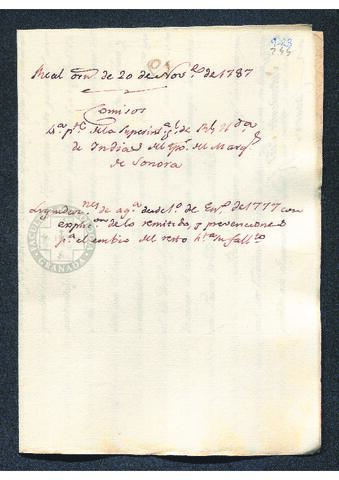 Real orn. de 20 de Nove. de 1787
Comisos
4a. pte. de la Superinta. gl. de Rl. Hda.
de Indias del tpo. del Marqs.
de Sonora
Liquidones. de aqa. desde 1o. de Eno. de 1777 con
explicon. de lo remitido, y prevencions.
pa. el embio del resto hta. su fallto.
GRANADA